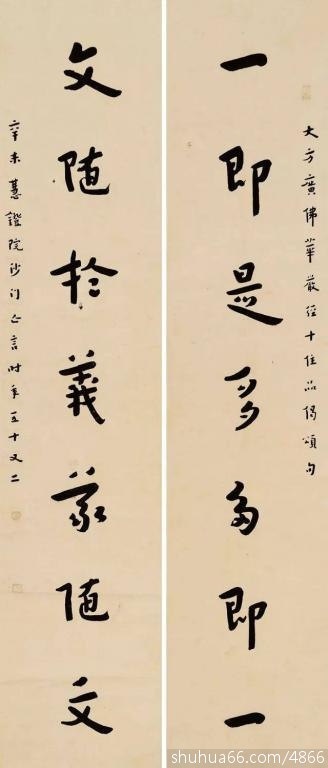 大方廣佛華嚴經十住品偈頌句
一即是多多即一
文随於義義随文
辛未慧證院沙门亡言时年五十又二
shuhua66.com/4866